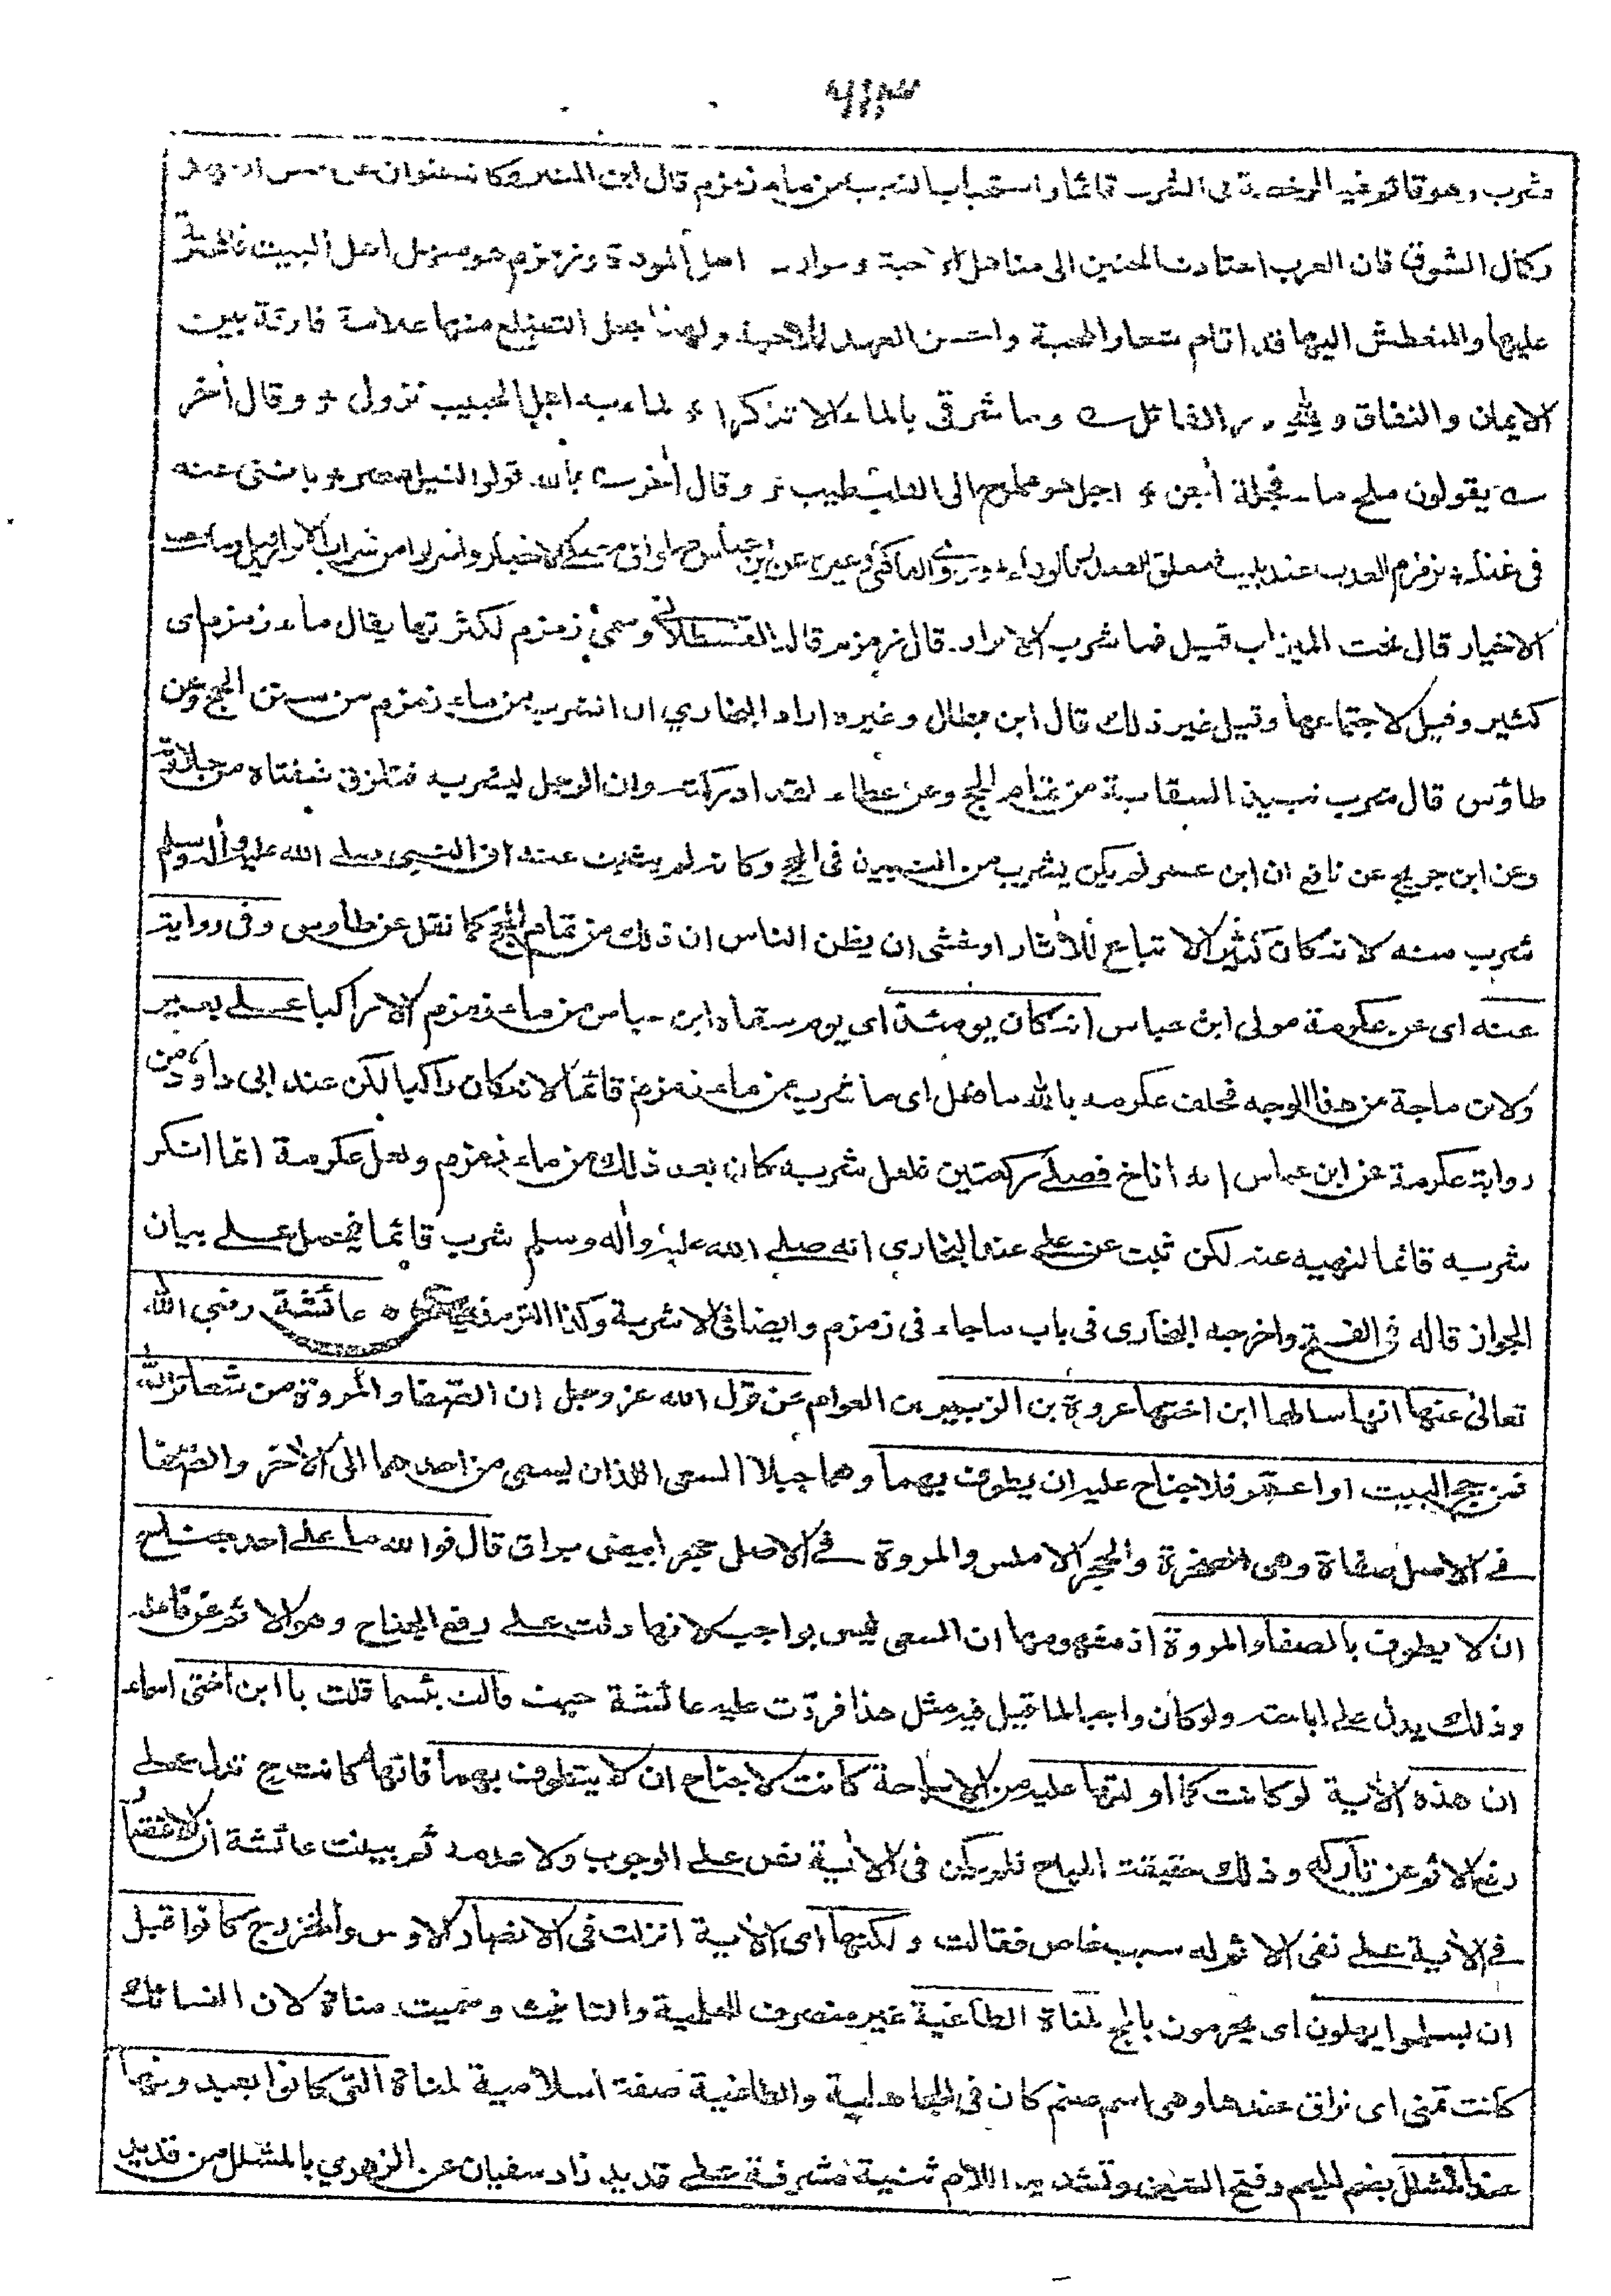 ٦١٣
فشرب وهو قائم فيه الرخصة في الشرب قائما واستحباب الشرب من ماء زمزم قال ابن المنير وكانه عنوان عن حسن العهد
وكمال الشوق فان العرب اعتادت الحنين الى مناهل الاحبة وموارد اهل المودة وزمزم هو منزل اهل البيت فالمتحرق
عليها والمتعطش اليها قد اقام شعار المحبة واحسن العهد للاحبة ولهذا جعل التضلع منها علامة فارقة بين
الايمان والنفاق ولله در القائل وما شرقي بالماء الا تذكرا لماء به اهل الحبيب نزول وقال آخر
يقولون ملح ماء فجلة آجن اجل هو مملوح الى القلب طيب وقال آخر بالله قولوا لنيل مصر بانني عنه
في غنا بزمزم العذب عند بيت معلق الستر بالوفاء وروى الفاكهي وغيره عن ابن عباس صلوا في مصلى الاخيار واشربوا من شراب الابرار قيل وما مصلى
الاخيار قال تحت الميزاب قيل فما شراب الابرار قال زمزم قال القسطلاني وسمي زمزم لكثرتها يقال ماء زمزم اى
كثير وقيل لاجتماعها وقيل غير ذلك قال ابن بطال وغيره اراد البخاري ان الشرب من ماء زمزم من سنن الحج وعن
طاؤس قال شرب نبيذ السقاية من تمام الحج وعن عطاء لقد ادركته وان الرجل ليشربه فتلزق شفتاه من حلاوته
وعن ابن جريج عن نافع ان ابن عمر لم يكن يشرب من النبيذ في الحج وكانه لم يثبت عنده ان النبي صلى الله عليه وآله وسلم
شرب منه لانه كان كثير الاتباع للآثار او خشى ان يظن الناس ان ذلك من تمام الحج كما نقل عن طاوس وفي رواية
عنه اى عن عكرمة مولى ابن عباس انه كان يومئذ اى يوم سقاه ابن عباس من ماء زمزم الا راكبا على بعير
ولابن ماجة من هذا الوجه فحلف عكرمه بالله ما فعل اى ما شرب من ماء زمزم قائما لانه كان راكبا لكن عند ابي داؤد من
رواية عكرمة عن ابن عباس انه اناخ فصلى ركعتين فلعل شربه كان بعد ذلك من ماء زمزم ولعل عكرمة انما انكر
شربه قائما لنهيه عنه لكن ثبت عن على عند البخاري انه صلى الله عليه وآله وسلم شرب قائما فيحمل على بيان
الجواز قاله في الفتح واخرجه البخاري في باب ما جاء في زمزم وايضا في الاشربة وكذا الترمذي عائشة رضي الله
تعالى عنها انها سالها ابن اختها عروة بن الزبير بن العوام عن قول الله عز وجل ان الصفا والمروة من شعائر الله
فمن حج البيت او اعتمر فلا جناح عليه ان يطوف بهما وهما جبلا السعى اللذان يسعى من احدهما الى الآخر والصفا
في الاصل صفاة وهى الصخرة والحجر الاملس والمروة في الاصل حجر ابيض براق قال فوالله ما على احد جناح
ان لا يطوف بالصفا والمروة اذ مفهومها ان السعى ليس بواجب لانها دلت على رفع الجناح وهو الاثم عن فاعله
وذلك يدل على اباحته ولو كان واجبا لما قيل فيه مثل هذا فردّت عليه عائشة حيث قالت بئسما قلت يا ابن اختى اسماء
ان هذه الآية لو كانت كما اولتها عليه من الاباحة كانت لا جناح ان لا يتطوف بهما فانها كانت ح تدل على
رفع الاثم عن تاركه وذلك حقيقة المباح فلم يكن في الآية نص على الوجوب ولا عدمه ثم بينت عائشة ان الاقتصار
في الآية على نفى الاثم له سبب خاص فقالت ولكنها اى الآية انزلت في الانصار الاوس والخزرج كانوا قبل
ان يسلموا يهلون اى يحرمون بالحج لمناة الطاغية غير منصرف للعلمية والتانيث وسميت مناة لان النسائك
كانت تمنى اى تراق عندها وهى اسم صنم كان في الجاهلية والطاغية صفة اسلامية لمناة التى كانوا يعبدونها
عند المشلل بضم الميم وفتح الشين وتشديد اللام ثنية مشرفة على قديد زاد سفيان عن الزهري بالمشلل من قديد